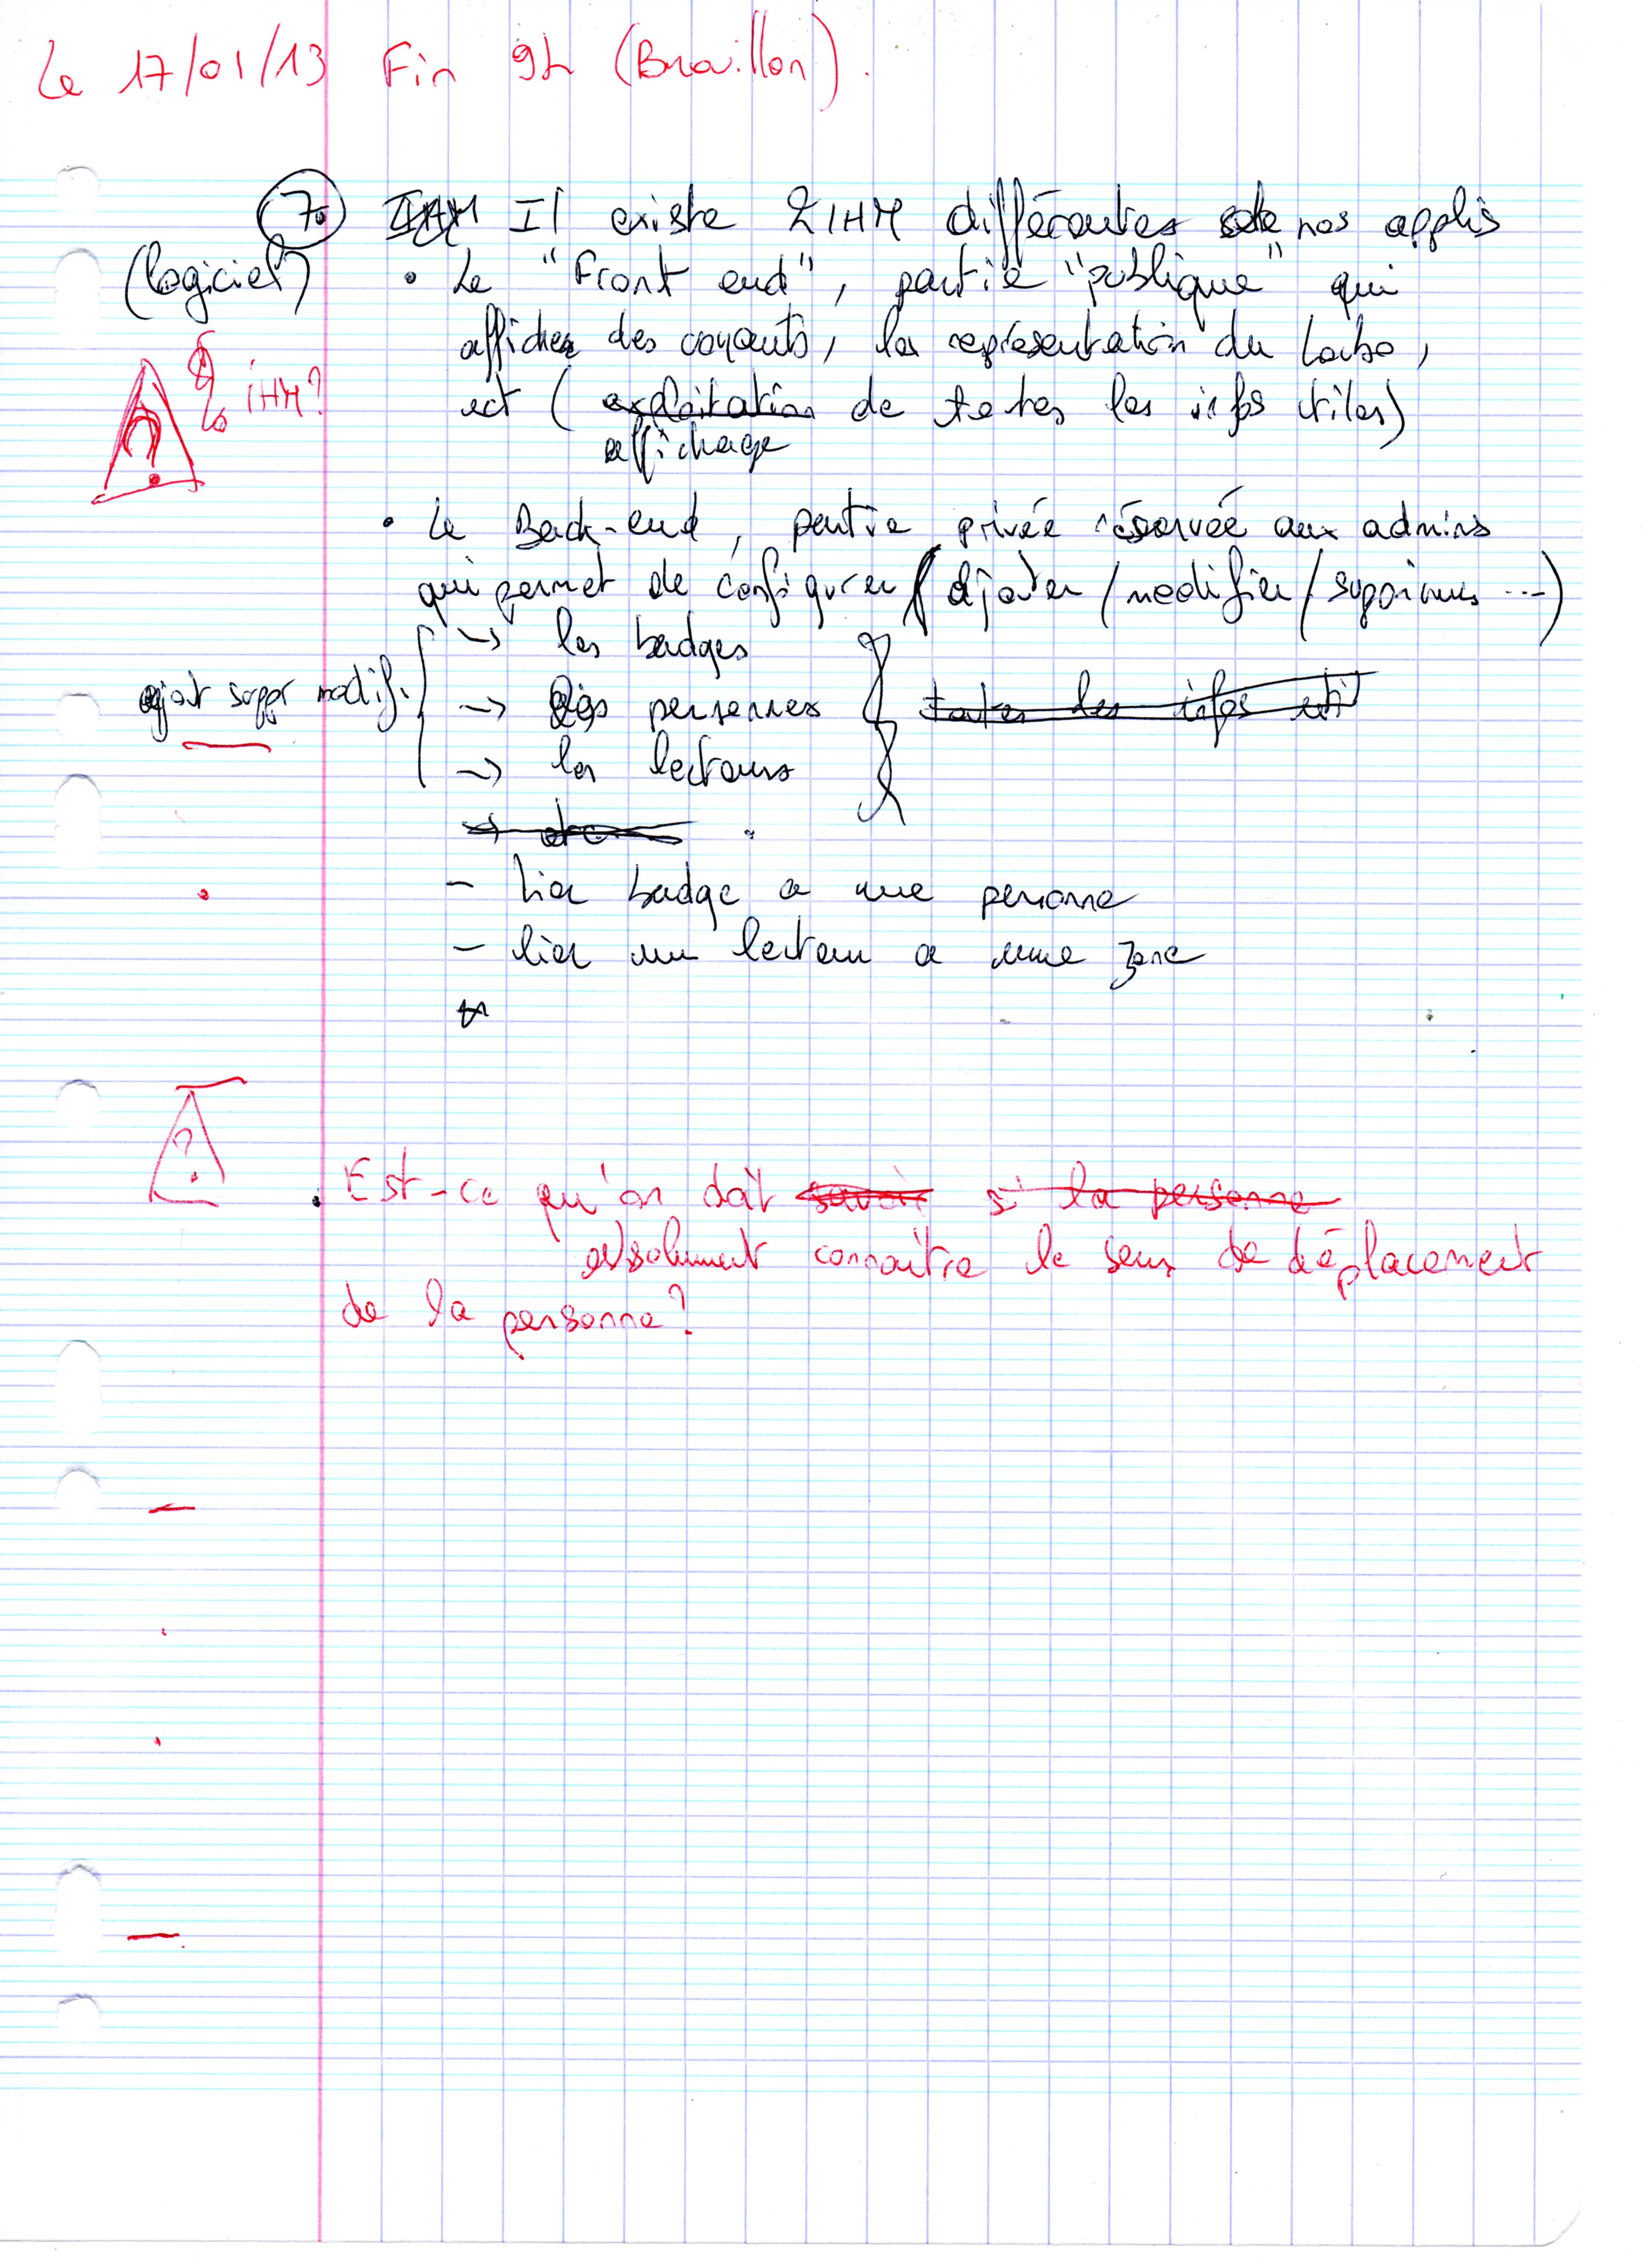 Le 17/01/13 Fin 9h (Brouillon).
7o IHM Il existe 2 IHM différentes de nos applis
(logiciel) • Le "Front end", partie "publique" qui
affiche des voyants, la représentation du labo,
IHM?
ect (exploitation de toutes les infos utiles)
affichage
• Le Back-end, partie privée réservée aux admins
qui permet de configurer (ajouter / modifier / supprimer ...)
→ les badges
ajout suppr modif. → les personnes toutes les infos uti
→ les lecteurs
- lier badge a une personne
- lier un lecteur a une zone
?
• Est-ce qu'on doit savoir si la personne
absolument connaître le sens de déplacement
de la personne?